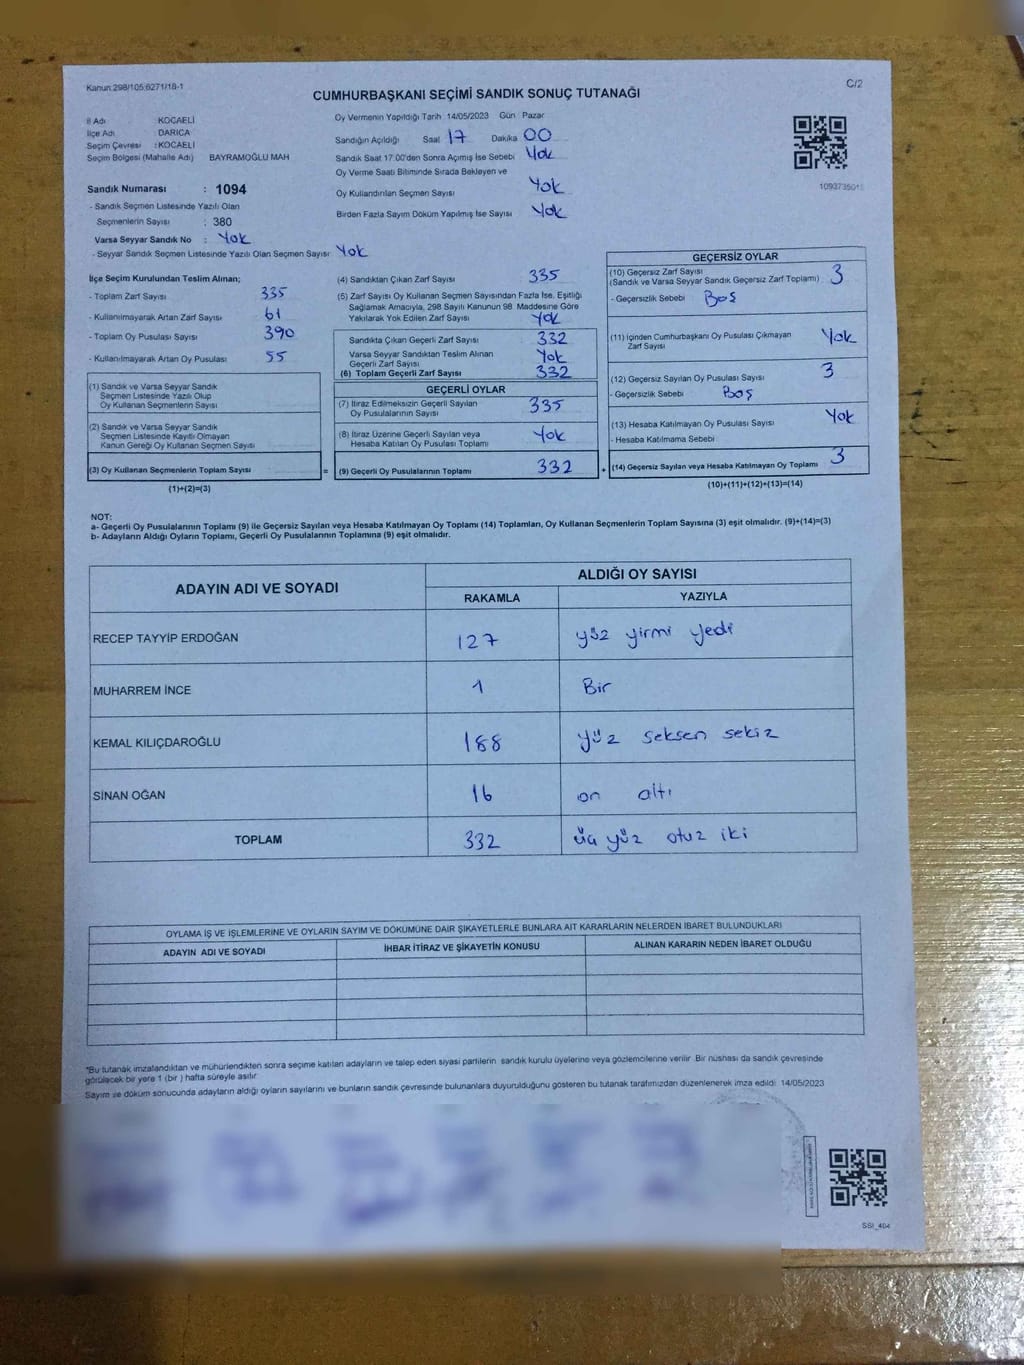 Kanun:298/105;6271/18-1
C/2
CUMHURBAŞKANI SEÇİMİ SANDIK SONUÇ TUTANAĞI
İl Adı : KOCAELİ
İlçe Adı : DARICA
Seçim Çevresi : KOCAELİ
Seçim Bölgesi (Mahalle Adı) BAYRAMOĞLU MAH
Sandık Numarası : 1094
- Sandık Seçmen Listesinde Yazılı Olan
Seçmenlerin Sayısı : 380
Varsa Seyyar Sandık No : Yok
- Seyyar Sandık Seçmen Listesinde Yazılı Olan Seçmen Sayısı: Yok
Oy Vermenin Yapıldığı Tarih 14/05/2023 Gün Pazar
Sandığın Açıldığı Saat 17 Dakika 00
Sandık Saat 17:00'den Sonra Açımış İse Sebebi Yok
Oy Verme Saati Bitiminde Sırada Bekleyen ve
Oy Kullandırılan Seçmen Sayısı Yok
Birden Fazla Sayım Döküm Yapılmış İse Sayısı Yok
İlçe Seçim Kurulundan Teslim Alınan;
- Toplam Zarf Sayısı 335
- Kullanılmayarak Artan Zarf Sayısı 61
- Toplam Oy Pusulası Sayısı 390
- Kullanılmayarak Artan Oy Pusulası 55
(1) Sandık ve Varsa Seyyar Sandık
Seçmen Listesinde Yazılı Olup
Oy Kullanan Seçmenlerin Sayısı
(2) Sandık ve Varsa Seyyar Sandık
Seçmen Listesinde Kayıtlı Olmayan
Kanun Gereği Oy Kullanan Seçmen Sayısı
(3) Oy Kullanan Seçmenlerin Toplam Sayısı =
(1)+(2)=(3)
(4) Sandıktan Çıkan Zarf Sayısı 335
(5) Zarf Sayısı Oy Kullanan Seçmen Sayısından Fazla İse, Eşitliği
Sağlamak Amacıyla, 298 Sayılı Kanunun 98. Maddesine Göre
Yakılarak Yok Edilen Zarf Sayısı Yok
Sandıkta Çıkan Geçerli Zarf Sayısı 332
Varsa Seyyar Sandıktan Teslim Alınan
Geçerli Zarf Sayısı Yok
(6) Toplam Geçerli Zarf Sayısı 332
GEÇERLİ OYLAR
(7) İtiraz Edilmeksizin Geçerli Sayılan
Oy Pusulalarının Sayısı 335
(8) İtiraz Üzerine Geçerli Sayılan veya
Hesaba Katılan Oy Pusulası Toplamı Yok
(9) Geçerli Oy Pusulalarının Toplamı 332 +
GEÇERSİZ OYLAR
(10) Geçersiz Zarf Sayısı
(Sandık ve Varsa Seyyar Sandık Geçersiz Zarf Toplamı) 3
- Geçersizlik Sebebi Boş
(11) İçinden Cumhurbaşkanı Oy Pusulası Çıkmayan
Zarf Sayısı Yok
(12) Geçersiz Sayılan Oy Pusulası Sayısı 3
- Geçersizlik Sebebi Boş
(13) Hesaba Katılmayan Oy Pusulası Sayısı Yok
- Hesaba Katılmama Sebebi
(14) Geçersiz Sayılan veya Hesaba Katılmayan Oy Toplamı 3
(10)+(11)+(12)+(13)=(14)
NOT:
a- Geçerli Oy Pusulalarının Toplamı (9) ile Geçersiz Sayılan veya Hesaba Katılmayan Oy Toplamı (14) Toplamları, Oy Kullanan Seçmenlerin Toplam Sayısına (3) eşit olmalıdır. (9)+(14)=(3)
b- Adayların Aldığı Oyların Toplamı, Geçerli Oy Pusulalarının Toplamına (9) eşit olmalıdır.
ADAYIN ADI VE SOYADI ALDIĞI OY SAYISI
RAKAMLA YAZIYLA
RECEP TAYYİP ERDOĞAN 127 yüz yirmi yedi
MUHARREM İNCE 1 Bir
KEMAL KILIÇDAROĞLU 188 yüz seksen sekiz
SİNAN OĞAN 16 on altı
TOPLAM 332 üç yüz otuz iki
OYLAMA İŞ VE İŞLEMLERİNE VE OYLARIN SAYIM VE DÖKÜMÜNE DAİR ŞİKAYETLERLE BUNLARA AİT KARARLARIN NELERDEN İBARET BULUNDUKLARI
ADAYIN ADI VE SOYADI İHBAR İTİRAZ VE ŞİKAYETİN KONUSU ALINAN KARARIN NEDEN İBARET OLDUĞU
*Bu tutanak imzalandıktan ve mühürlendikten sonra seçime katılan adayların ve talep eden siyasi partilerin sandık kurulu üyelerine veya gözlemcilerine verilir. Bir nüshası da sandık çevresinde
görülecek bir yere 1 (bir) hafta süreyle asılır.
Sayım ve döküm sonucunda adayların aldığı oyların sayılarını ve bunların sandık çevresinde bulunanlara duyurulduğunu gösteren bu tutanak tarafımızdan düzenlenerek imza edildi. 14/05/2023
SSI_404